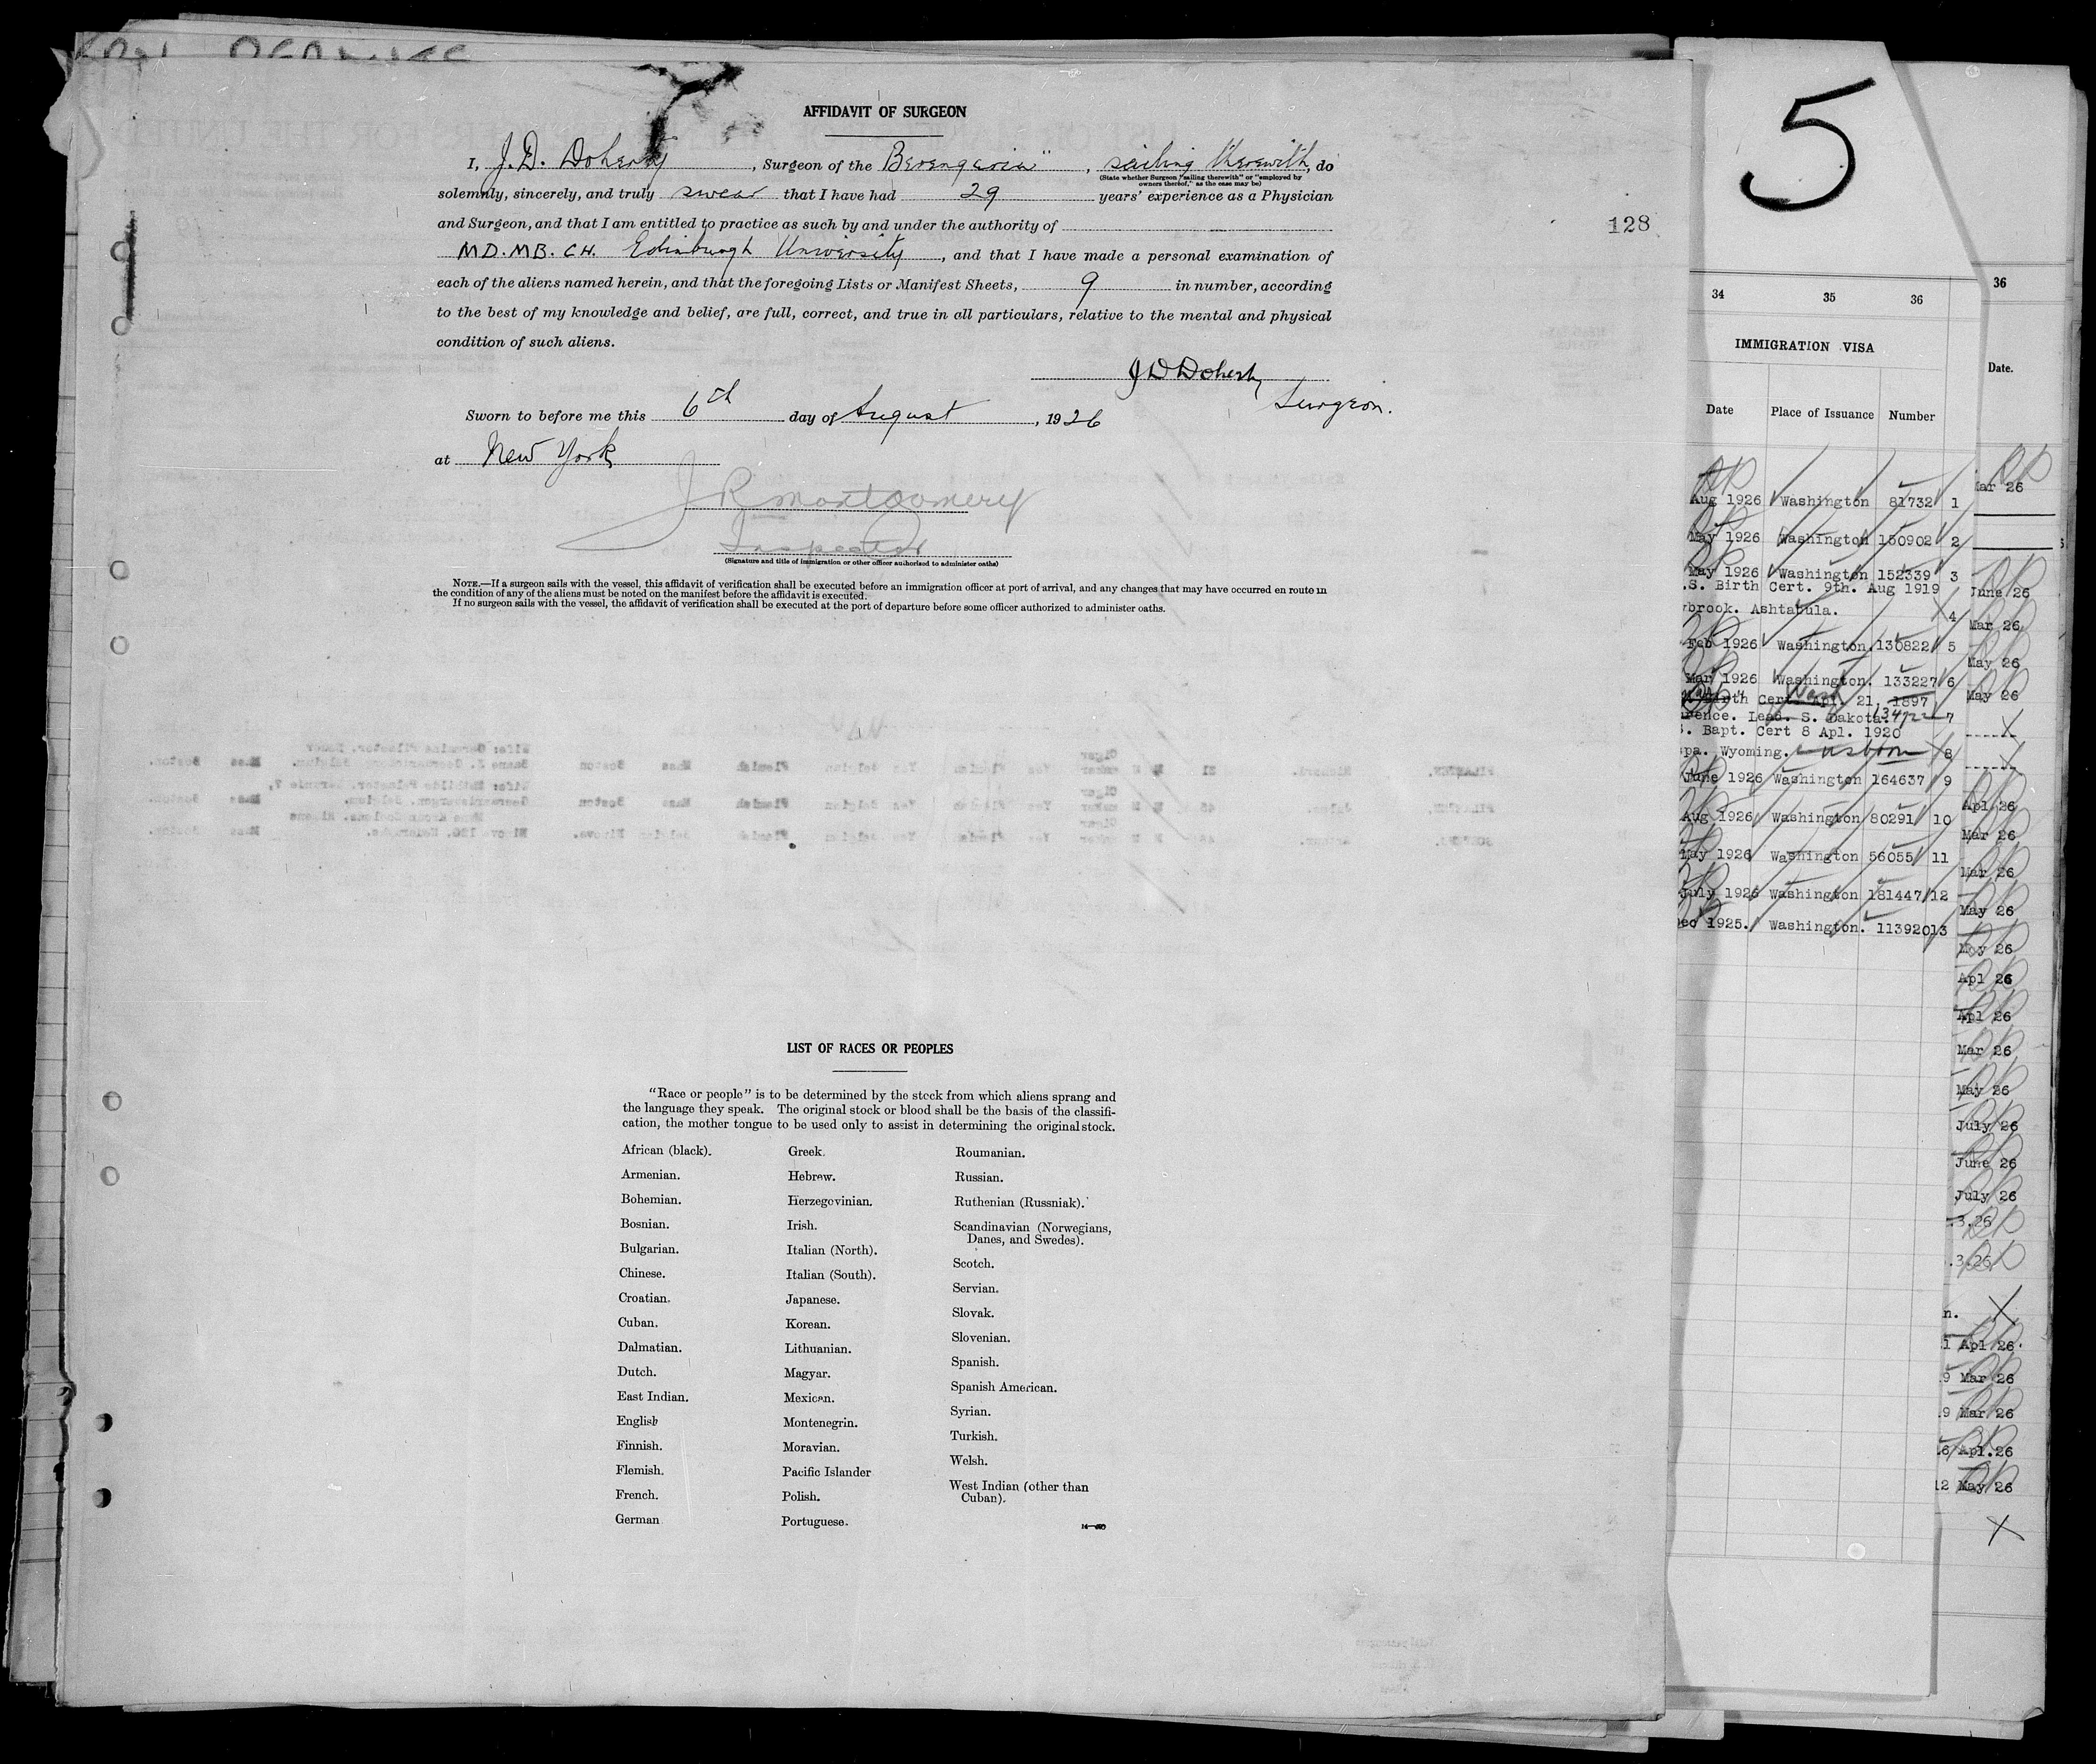 AFFIDAVIT OF SURGEON
I, J. D. Doherty, Surgeon of the Berengaria", sailing therewith, do
(State whether Surgeon "sailing therewith" or "employed by
owners thereof," as the case may be)
solemnly, sincerely, and truly swear that I have had 29 years' experience as a Physician
and Surgeon, and that I am entitled to practice as such by and under the authority of
MD. MB. CH. Edinburgh University, and that I have made a personal examination of
each of the aliens named herein, and that the foregoing Lists or Manifest Sheets, 9 in number, according
to the best of my knowledge and belief, are full, correct, and true in all particulars, relative to the mental and physical
condition of such aliens.
J D Doherty
Surgeon.
Sworn to before me this 6th day of August, 1926
at New York
J R Montgomery
Inspector
(Signature and title of immigration or other officer authorized to administer oaths)
NOTE.—If a surgeon sails with the vessel, this affidavit of verification shall be executed before an immigration officer at port of arrival, and any changes that may have occurred en route in
the condition of any of the aliens must be noted on the manifest before the affidavit is executed.
If no surgeon sails with the vessel, the affidavit of verification shall be executed at the port of departure before some officer authorized to administer oaths.
128
LIST OF RACES OR PEOPLES
"Race or people" is to be determined by the stock from which aliens sprang and
the language they speak. The original stock or blood shall be the basis of the classifi-
cation, the mother tongue to be used only to assist in determining the original stock.
African (black).
Armenian.
Bohemian.
Bosnian.
Bulgarian.
Chinese.
Croatian.
Cuban.
Dalmatian.
Dutch.
East Indian.
English
Finnish.
Flemish.
French.
German
Greek.
Hebrew.
Herzegovinian.
Irish.
Italian (North).
Italian (South).
Japanese.
Korean.
Lithuanian.
Magyar.
Mexican.
Montenegrin.
Moravian.
Pacific Islander
Polish.
Portuguese.
Roumanian.
Russian.
Ruthenian (Russniak).
Scandinavian (Norwegians,
Danes, and Swedes).
Scotch.
Servian.
Slovak.
Slovenian.
Spanish.
Spanish American.
Syrian.
Turkish.
Welsh.
West Indian (other than
Cuban).
5
34 35 36
IMMIGRATION VISA
Date Place of Issuance Number
Aug 1926 Washington 81732 1
May 1926 Washington 150902 2
May 1926 Washington 152339 3
.S. Birth Cert. 9th. Aug 1919
brook. Ashtabula. 4
Feb 1926 Washington. 130822 5
Mar 1926 Washington. 133227 6
Birth Cert. Apl. 21, 1897
Lead. S. Dakota. 7
. Bapt. Cert 8 Apl. 1920
pa. Wyoming. 8
June 1926 Washington 164637 9
Aug 1926 Washington 80291 10
May 1926 Washington 56055 11
July 1926 Washington 181447 12
ec 1925. Washington. 113920 13
36
Date.
Mar 26
June 26
Mar 26
May 26
May 26
Apl 26
Mar 26
Mar 26
May 26
May 26
Apl 26
Apl 26
Mar 26
May 26
July 26
June 26
July 26
.3.26
.3.26
n.
1 Apl 26.
9 Mar 26
9 Mar 26
16 Apl.26
12 May 26